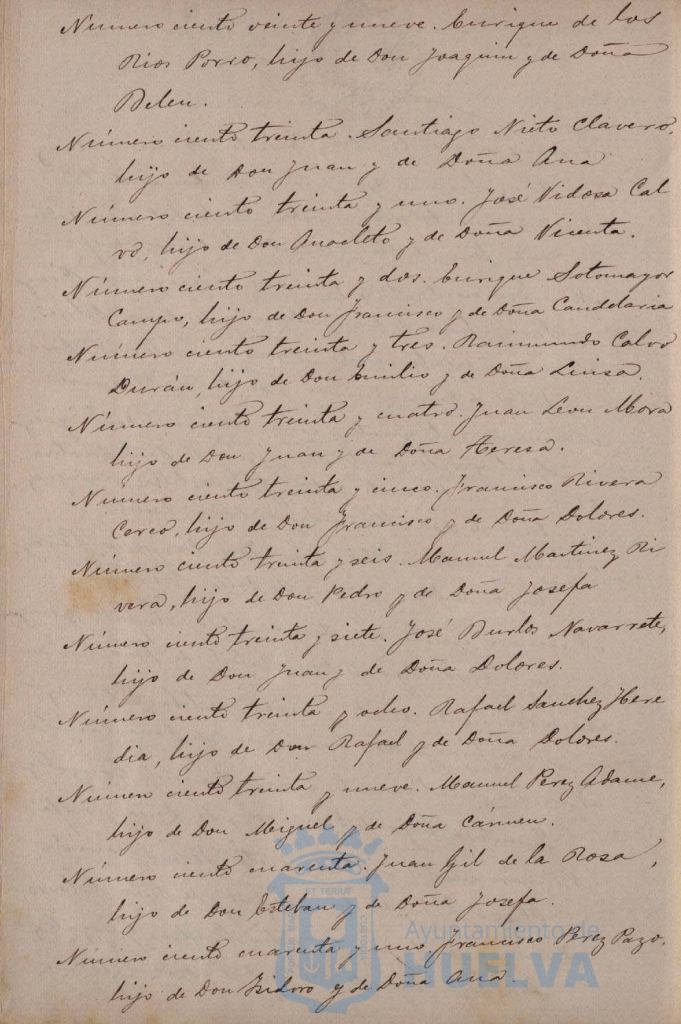 Número ciento veinte y nueve. Enrique de los
Rios Porro, hijo de Don Joaquin y de Doña
Belen.
Número ciento treinta. Santiago Nieto Clavero,
hijo de Don Juan y de Doña Ana
Número ciento treinta y uno. José Vidosa Cal
vo, hijo de Don Anacleto y de Doña Vicenta.
Número ciento treinta y dos. Enrique Sotomayor
Campo, hijo de Don Francisco y de Doña Candelaria
Número ciento treinta y tres. Raimundo Calvo
Durán, hijo de Don Emilio y de Doña Luisa.
Número ciento treinta y cuatro. Juan Leon Mora
hijo de Don Juan y de Doña Teresa.
Número ciento treinta y cinco. Francisco Rivera
hijo de Don Francisco y de Doña Dolores.
Número ciento treinta y seis. Manuel Martinez Ri
vera, hijo de Don Pedro y de Doña Josefa
Número ciento treinta y siete. José Burlos Navarrete,
hijo de Don Juan y de Doña Dolores.
Número ciento treinta y ocho. Rafael Sanchez Here
dia, hijo de Don Rafael y de Doña Dolores.
Número ciento treinta y nueve. Manuel Perez Adame,
hijo de Don Miguel y de Doña Cármen.
Número ciento cuarenta. Juan Gil de la Rosa,
hijo de Don Esteban y de Doña Josefa.
Número ciento cuarenta y uno Francisco Perez Pazo,
hijo de Don Isidoro y de Doña Ana.
Ayuntamiento de
HUELVA